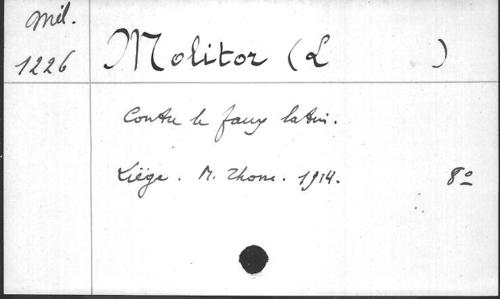 Mél.
1226
Molitor (L )
Contre le faux latin.
Liège. M. Thone. 1914. 8°